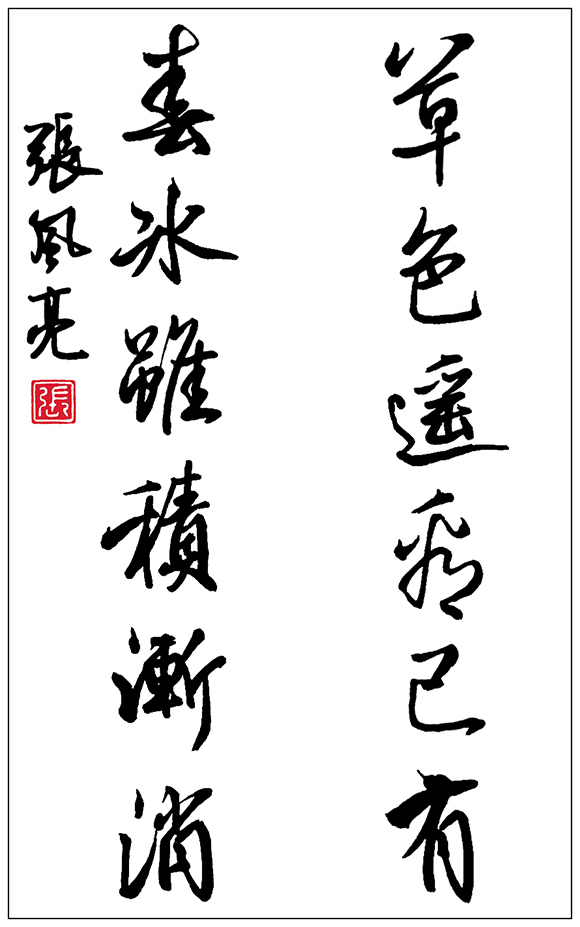 草色遥看已有
春冰雖積漸消
張風亮
张